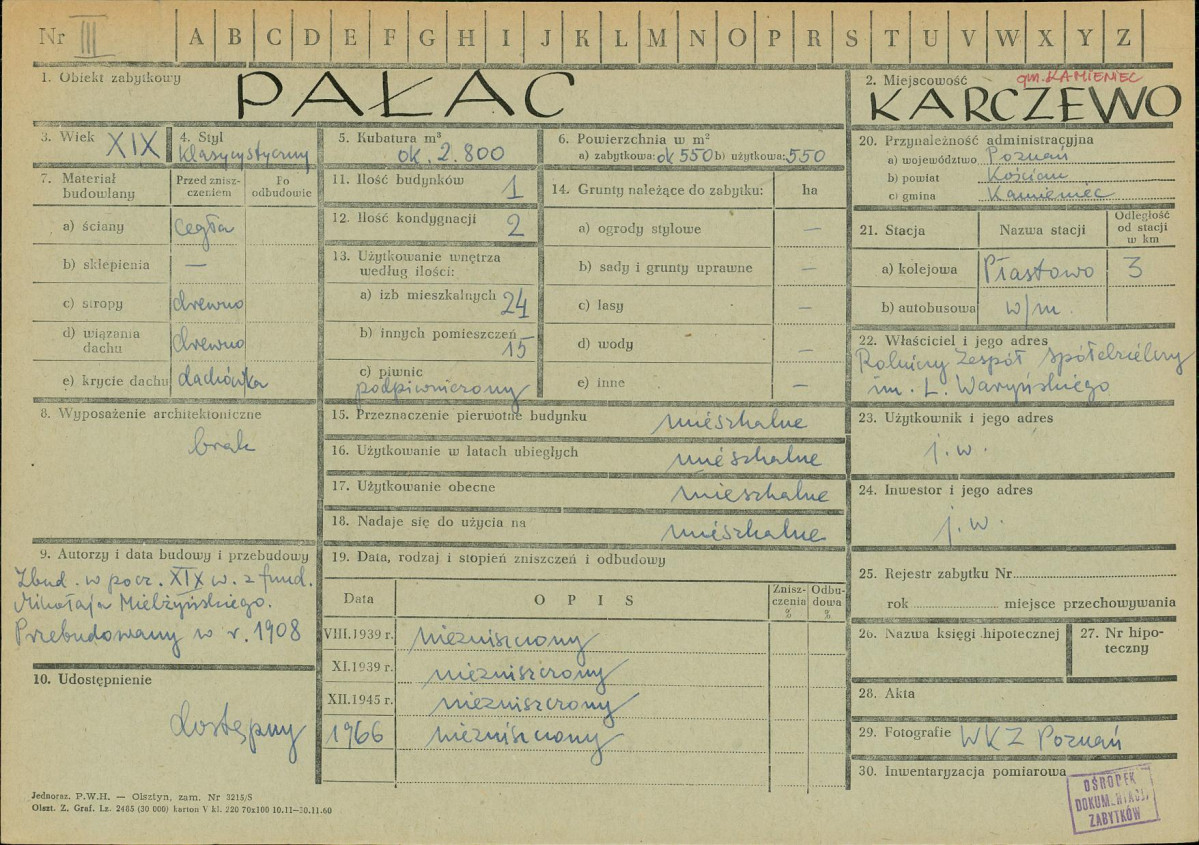 Nr III A B C D E F G H I J K L M N O P R S T U V W X Y Z
1. Obiekt zabytkowy
PAŁAC
2. Miejscowość gm. KAMIENIEC
KARCZEWO
3. Wiek XIX
4. Styl
klasycystyczny
5. Kubatura m³
ok. 2.800
6. Powierzchnia w m²
a) zabytkowa: ok 550 b) użytkowa: 550
20. Przynależność administracyjna
a) województwo Poznań
b) powiat Kościan
c) gmina Kamieniec
7. Materiał budowlany
Przed znisz-
czeniem
Po
odbudowie
a) ściany cegła
b) sklepienia —
c) stropy drewno
d) wiązania
dachu drewno
e) krycie dachu dachówka
11. Ilość budynków 1
12. Ilość kondygnacji 2
13. Użytkowanie wnętrza
według ilości:
a) izb mieszkalnych 24
b) innych pomieszczeń
15
c) piwnic
podpiwniczony
14. Grunty należące do zabytku: ha
a) ogrody stylowe —
b) sady i grunty uprawne —
c) lasy —
d) wody —
e) inne —
21. Stacja Nazwa stacji
Odległość
od stacji
w km
a) kolejowa Piastowo 3
b) autobusowa w/m.
22. Właściciel i jego adres
Rolniczy Zespół Spółdzielczy
im. L. Waryńskiego
8. Wyposażenie architektoniczne
brak
15. Przeznaczenie pierwotne budynku mieszkalne
16. Użytkowanie w latach ubiegłych mieszkalne
17. Użytkowanie obecne mieszkalne
18. Nadaje się do użycia na mieszkalne
23. Użytkownik i jego adres
j. w.
24. Inwestor i jego adres
j. w.
9. Autorzy i data budowy i przebudowy
Zbud. w pocz. XIX w. z fund.
Mikołaja Mielżyńskiego.
Przebudowany w r. 1908
10. Udostępnienie
dostępny
19. Data, rodzaj i stopień zniszczeń i odbudowy
Data OPIS
Znisz-
czenia
%
Odbu-
dowa
%
VIII.1939 r. niezniszczony
XI.1939 r. niezniszczony
XII.1945 r. niezniszczony
1966 niezniszczony
25. Rejestr zabytku Nr
rok miejsce przechowywania
26. Nazwa księgi hipotecznej
27. Nr hipo-
teczny
28. Akta
29. Fotografie WKZ Poznań
30. Inwentaryzacja pomiarowa
OŚRODEK
DOKUMENTACJI
ZABYTKÓW
Jednoraz. P.W.H. — Olsztyn, zam. Nr 3215/S
Olszt. Z. Graf. Lz. 2485 (30 000) karton V kl. 220 70x100 10.11—30.11.60